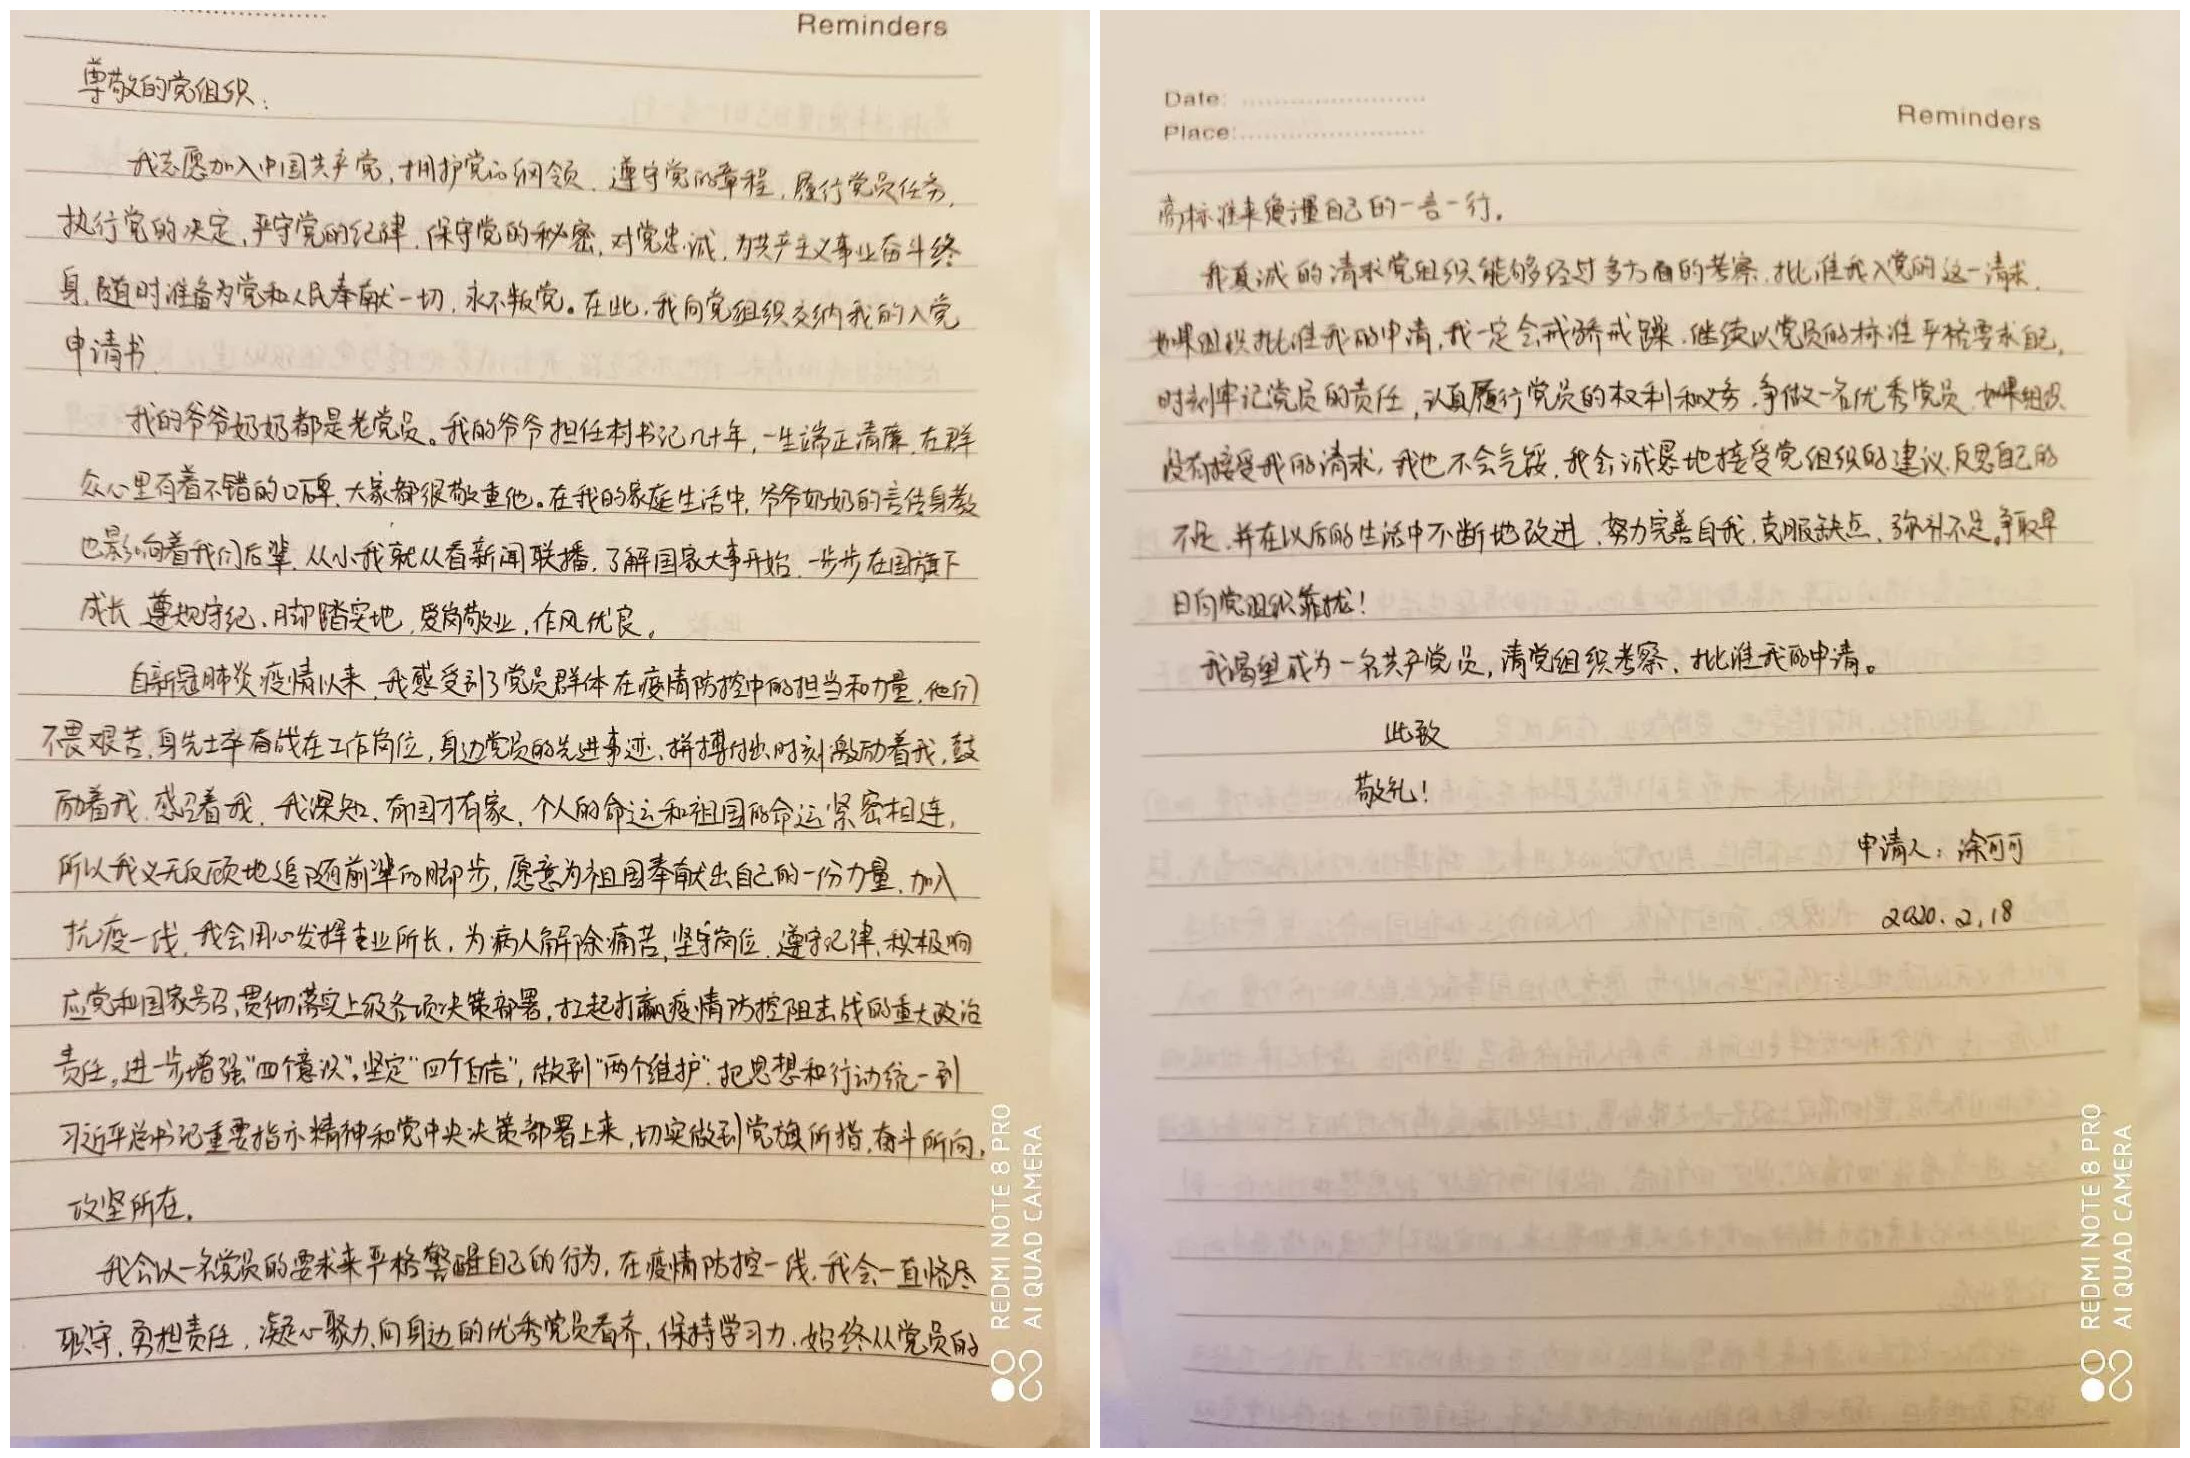 Reminders
尊敬的党组织：
我志愿加入中国共产党，拥护党的纲领，遵守党的章程，履行党员任务，
执行党的决定，严守党的纪律，保守党的秘密，对党忠诚，为共产主义事业奋斗终
身，随时准备为党和人民奉献一切，永不叛党。在此，我向党组织交纳我的入党
申请书。
我的爷爷奶奶都是老党员。我的爷爷担任村书记几十年，一生端正清廉，在群
众心里有着不错的口碑，大家都很敬重他。在我的家庭生活中，爷爷奶奶的言传身教
也影响着我们后辈，从小我就从看新闻联播，了解国家大事开始，一步步在国旗下
成长，遵规守纪、脚踏实地，爱岗敬业，作风优良。
自新冠肺炎疫情以来，我感受到了党员群体在疫情防控中的担当和力量，他们
不畏艰苦，身先士卒奋战在工作岗位，身边党员的先进事迹、拼搏付出，时刻激励着我，鼓
励着我，感召着我，我深知，有国才有家，个人的命运和祖国的命运紧密相连，
所以我义无反顾地追随前辈的脚步，愿意为祖国奉献出自己的一份力量，加入
抗疫一线，我会用心发挥专业所长，为病人解除痛苦，坚守岗位，遵守纪律，积极响
应党和国家号召，贯彻落实上级各项决策部署，扛起打赢疫情防控阻击战的重大政治
责任，进一步增强“四个意识”，坚定“四个自信”，做到“两个维护”，把思想和行动统一到
习近平总书记重要指示精神和党中央决策部署上来，切实做到党旗所指，奋斗所向，
攻坚所在。
我会以一名党员的要求来严格警醒自己的行为，在疫情防控一线，我会一直恪尽
职守，勇担责任，凝心聚力，向身边的优秀党员看齐，保持学习力，始终从党员的
REDMI NOTE 8 PRO
AI QUAD CAMERA
Date:
Place:
Reminders
高标准来衡量自己的一言一行。
我真诚的请求党组织能够经过多方面的考察，批准我入党的这一请求，
如果组织批准我的申请，我一定会戒骄戒躁，继续以党员的标准严格要求自己，
时刻牢记党员的责任，认真履行党员的权利和义务，争做一名优秀党员，如果组织
没有接受我的请求，我也不会气馁，我会诚恳地接受党组织的建议，反思自己的
不足，并在以后的生活中不断地改进，努力完善自我，克服缺点，弥补不足，争取早
日向党组织靠拢！
我渴望成为一名共产党员，请党组织考察，批准我的申请。
此致
敬礼！
申请人：涂可可
2020.2.18
REDMI NOTE 8 PRO
AI QUAD CAMERA